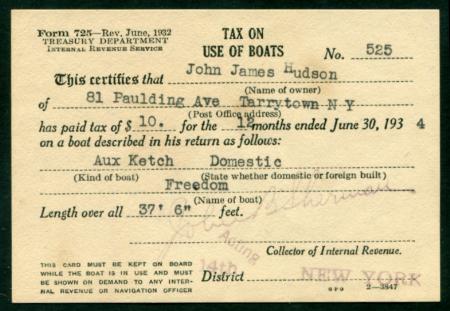 Form 725—Rev. June, 1932
TREASURY DEPARTMENT
INTERNAL REVENUE SERVICE
TAX ON
USE OF BOATS
No. 525
This certifies that John James Hudson
(Name of owner)
of 81 Paulding Ave Tarrytown N Y
(Post Office address)
has paid tax of $ 10. for the 12 months ended June 30, 193 4
on a boat described in his return as follows:
Aux Ketch Domestic
(Kind of boat) (State whether domestic or foreign built)
Freedom
(Name of boat)
Length over all 37' 6" feet.
John B Sherman
Acting
Collector of Internal Revenue.
THIS CARD MUST BE KEPT ON BOARD
WHILE THE BOAT IS IN USE AND MUST
BE SHOWN ON DEMAND TO ANY INTER-
NAL REVENUE OR NAVIGATION OFFICER
14th District NEW YORK
GPO 2—3847